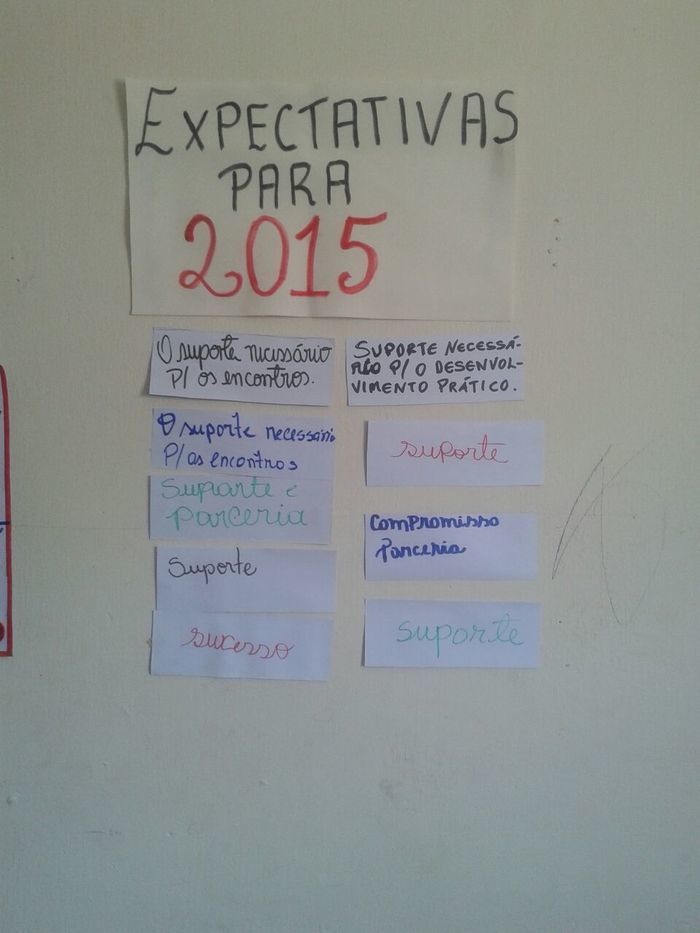 EXPECTATIVAS
PARA
2015
O suporte necessário
P/ os encontros.
O suporte necessário
P/ os encontros
Suporte e
parceria
Suporte
sucesso
SUPORTE NECESSÁ-
RIO P/ O DESENVOL-
VIMENTO PRÁTICO.
suporte
Compromisso
Parceria
suporte